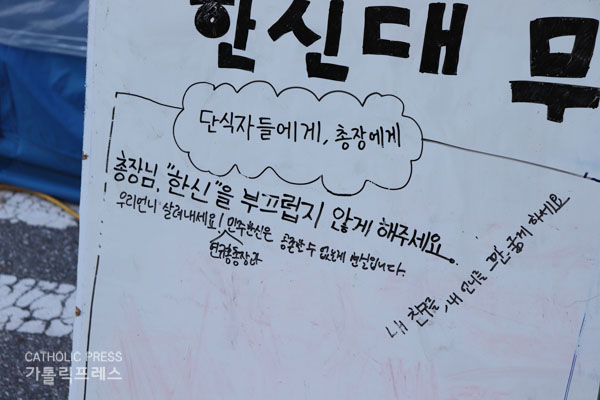 한신대 무
단식자들에게, 총장에게
총장님, "한신"을 부끄럽지 않게 해주세요.
우리언니 살려내세요! 민주한신은 공존할 수 없는게 현실입니다.
연규홍총장과
내 친구를, 내 언니를 그만 굶게 하세요
CATHOLIC PRESS
가톨릭프레스